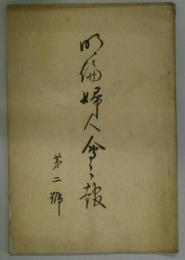 明倫婦人會々報
第二號